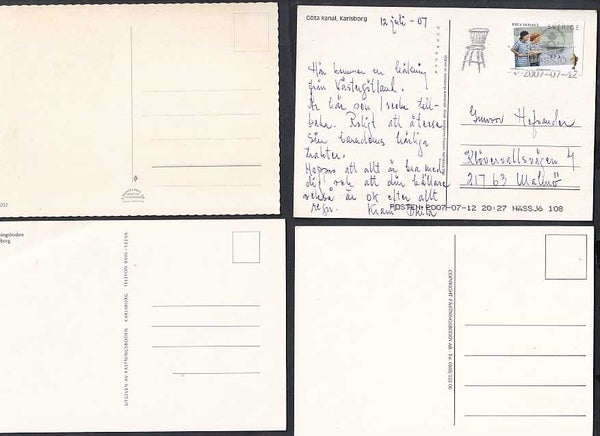 Göta kanal, Karlsborg
12 juli - 07
SVERIGE
2007-07-12
Här kommer en hälsning
från Västergötland.
Är här som 1 vecka till-
baka. Roligt att återse
sin barndoms härliga
trakter.
Hoppas att allt är bra med
dig och att din källare
också är ok efter allt
regn. Kram
Gunvor
Klövervallsvägen 4
217 63 Malmö
POSTEN 2007-07-12 20:27 NÄSSJÖ 108
ningsboden
borg
UTGIVEN AV FÄSTNINGSBODEN KARLSBORG TELEFON 0505-122 06
COPYRIGHT FÄSTNINGSBODEN AB Tel. 0505-122 06